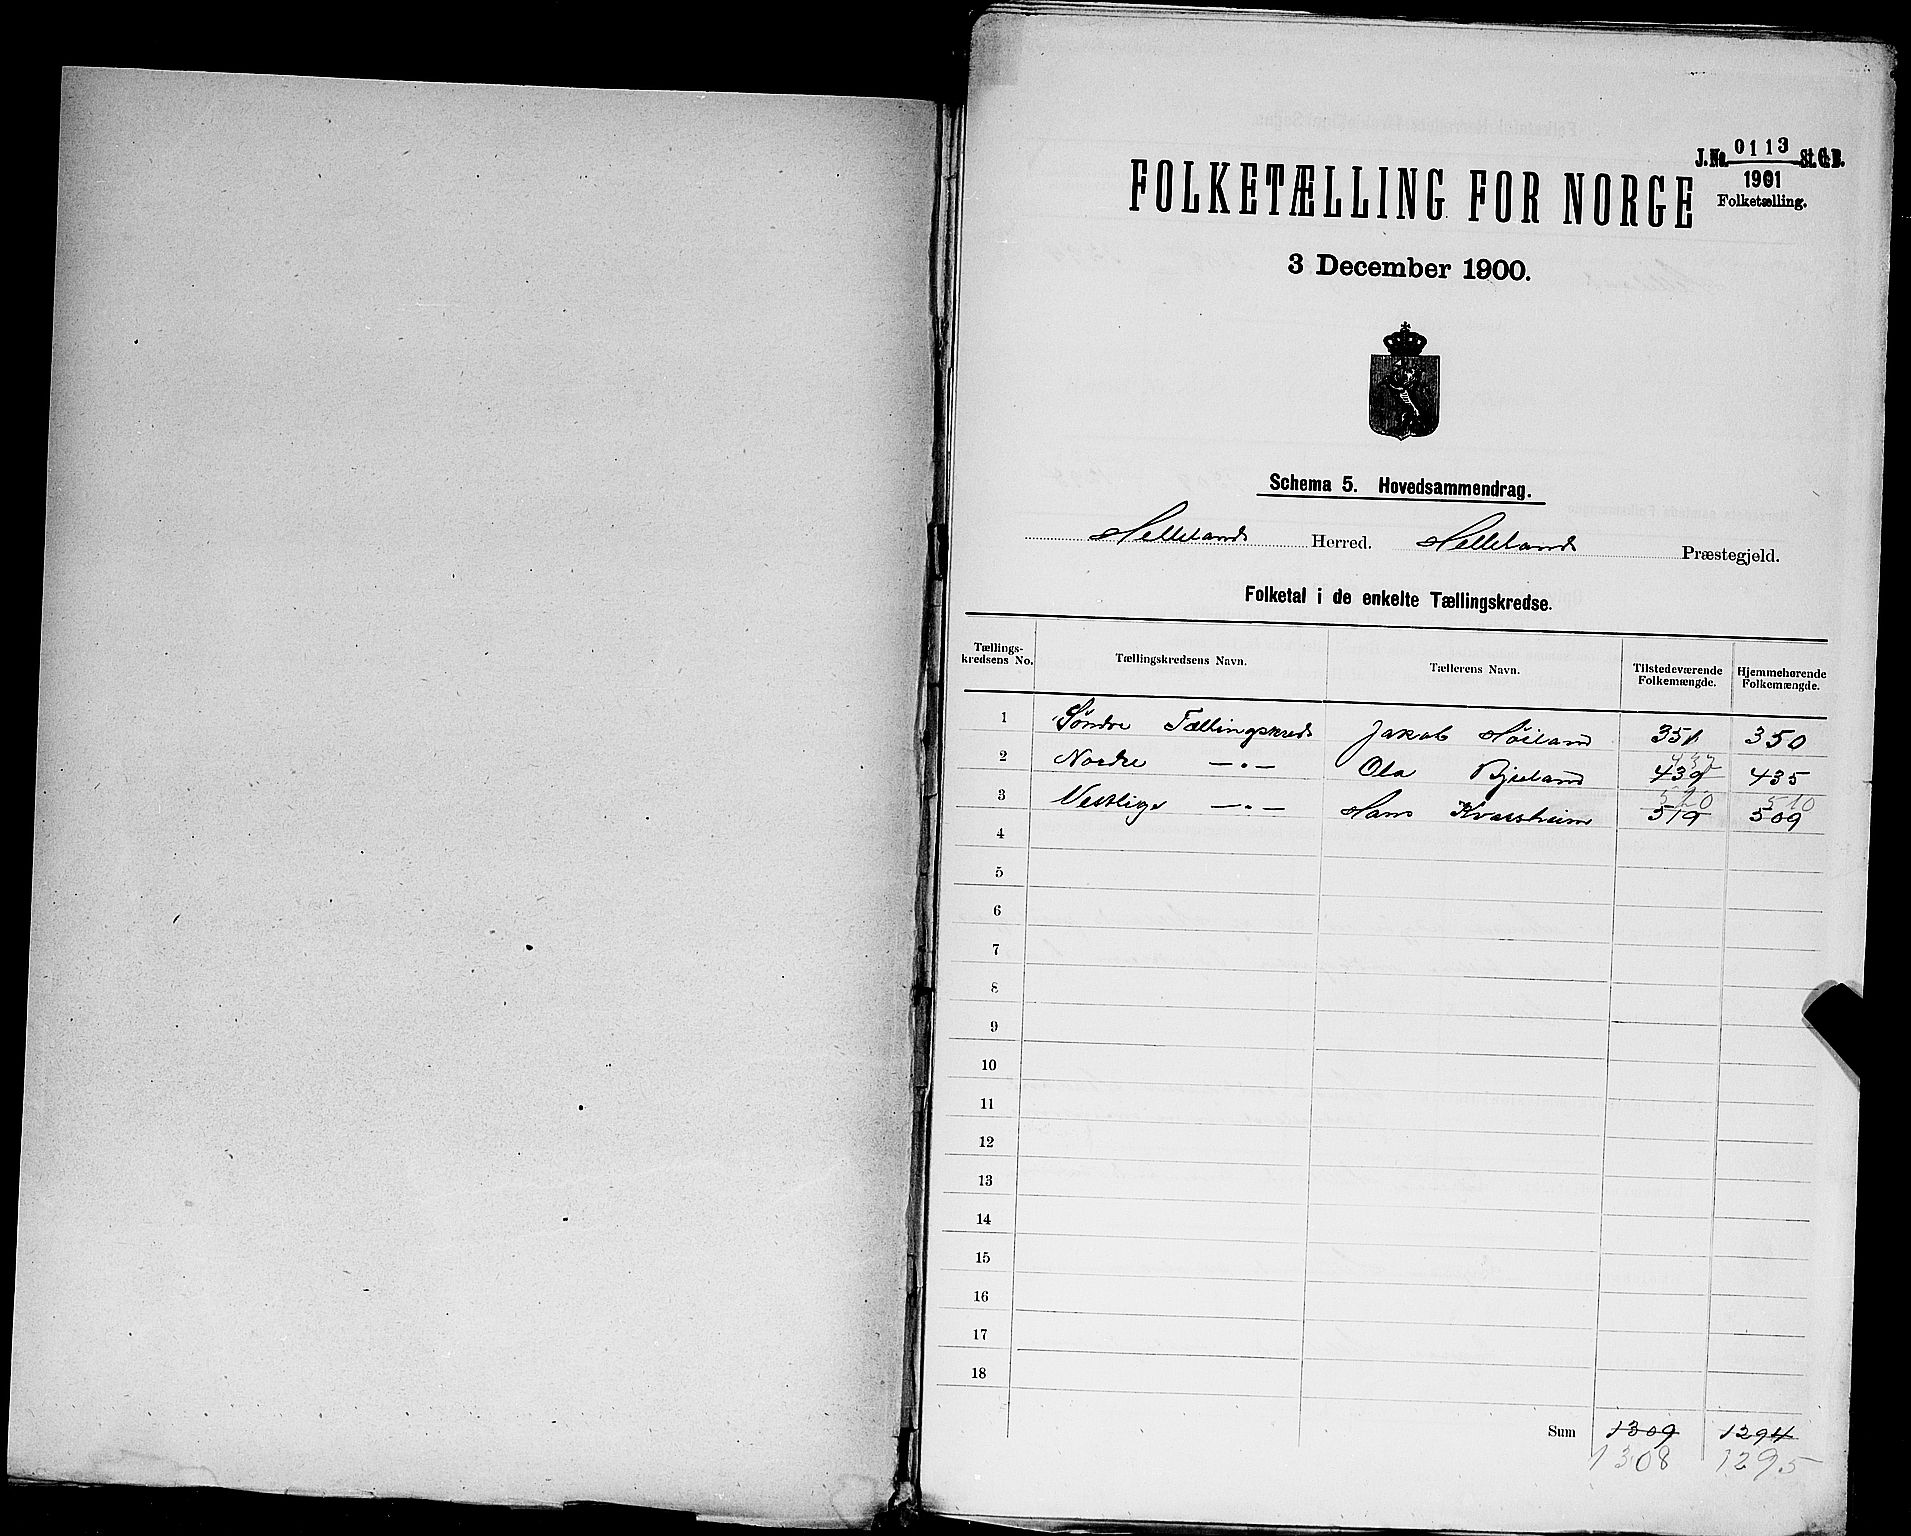 J. No. 0113 St. C. B.
1901
Folketælling.
FOLKETÆLLING FOR NORGE
3 December 1900.
Schema 5. Hovedsammendrag.
Helleland Herred. Helleland Præstegjeld.
Folketal i de enkelte Tællingskredse.
Tællings-kredsens No. Tællingskredsens Navn. Tællerens Navn. Tilstedeværende Folkemængde. Hjemmehørende Folkemængde.
1 Søndre Tællingskreds Jakob Høiland 351 350
437
2 Nordre —"— Ola Bjeland 439 435
520 510
3 Vestlige —"— Hans Kvassheim 519 509
4
5
6
7
8
9
10
11
12
13
14
15
16
17
18
Sum 1309 1294
1308 1295